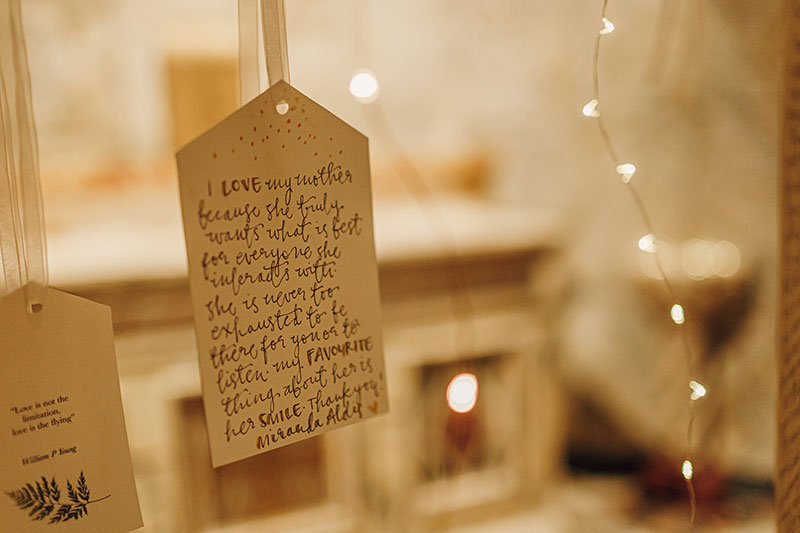 I LOVE my mother
because she truly
wants what is best
for everyone she
interacts with
she is never too
exhausted to be
there for you or to
listen. my FAVOURITE
thing about her is
her SMILE. Thank you!
Miranda Aldis
"Love is not the
limitation,
love is the flying"
William P Young